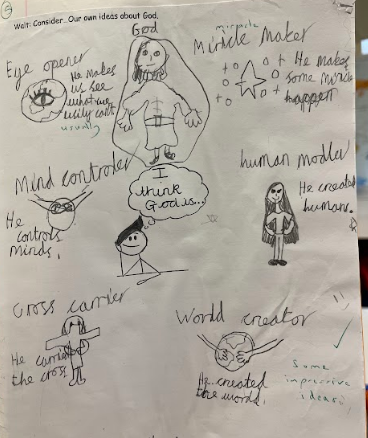 Walt: Consider.. Our own ideas about God.
God
miracle
Miricle Maker
Eye opener
He makes
us see
what we
usually
He makes
some
happen
Mind controler
He
controls
Minds.
I
think
God is...
human modler
He created
humans.
Cross carrier
He carried
the cross
World creator
He created
the world.
Some
impressive
ideas!